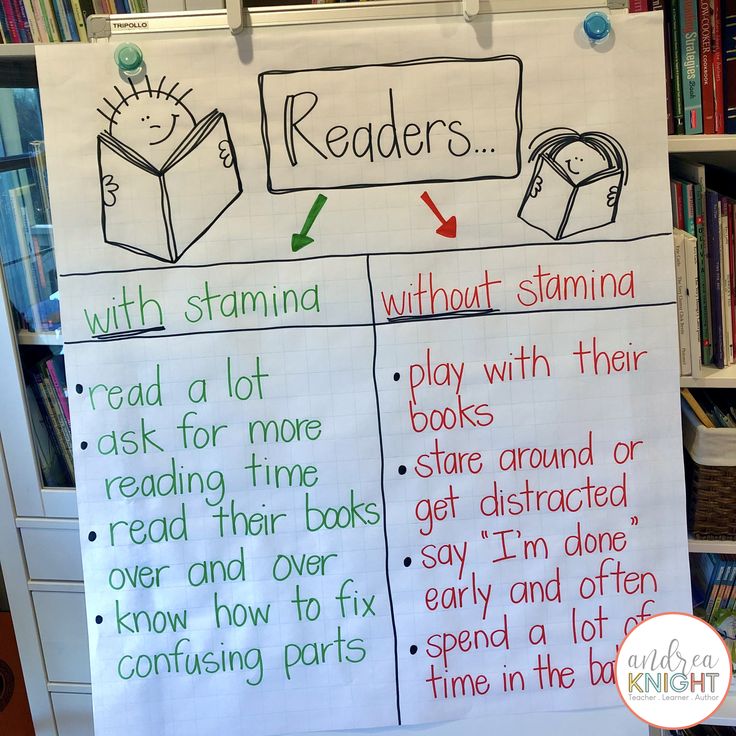 TRIPOLLO
Readers...
with stamina
without stamina
• read a lot
• ask for more
reading time
• read their books
over and over
• know how to fix
confusing parts
• play with their
books
• stare around or
get distracted
• say "I'm done"
early and often
• spend a lot of
time in the
andrea
KNIGHT
Teacher . Learner . Author
Strategies
Book
SLOW-COOKER
COOKBOOK